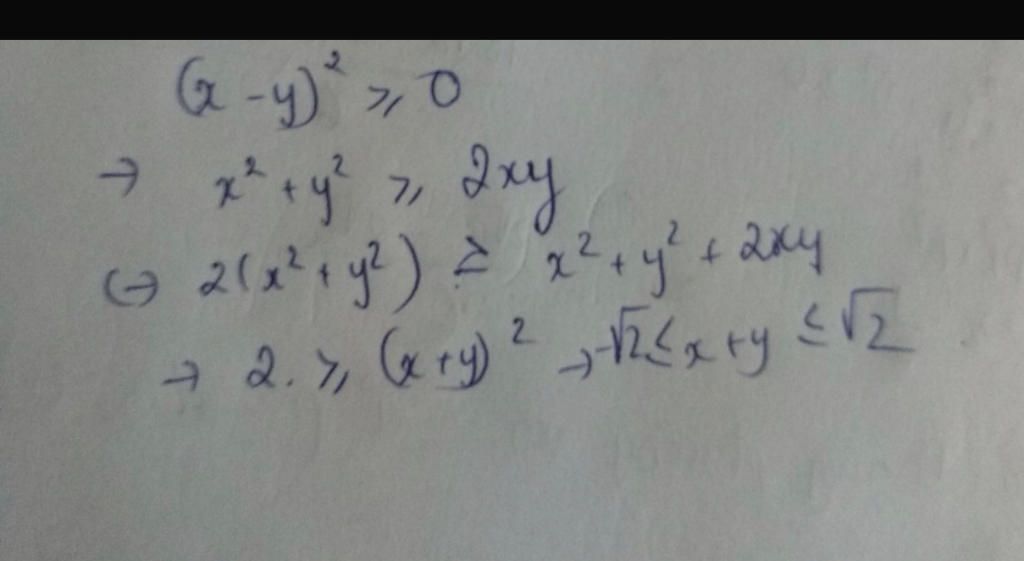 (x - y)² ⩾ 0
→ x² + y² ⩾ 2xy
(→ 2(x² + y²) ≥ x² + y² + 2xy
→ 2. ⩾ (x + y)² → -√2 ≤ x + y ≤ √2